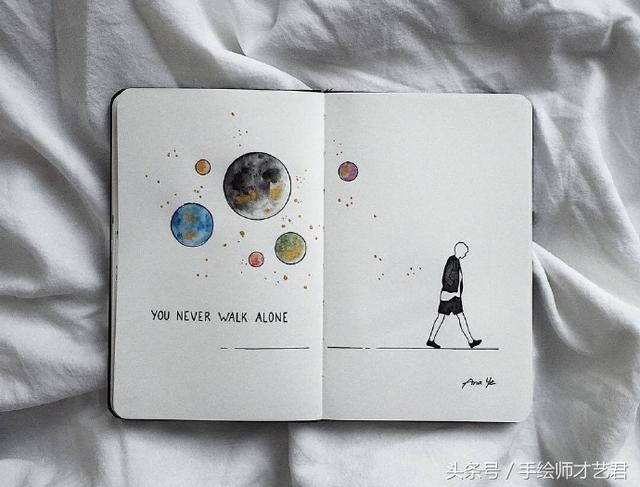 YOU NEVER WALK ALONE
Ana Ye
头条号 / 手绘师才艺君